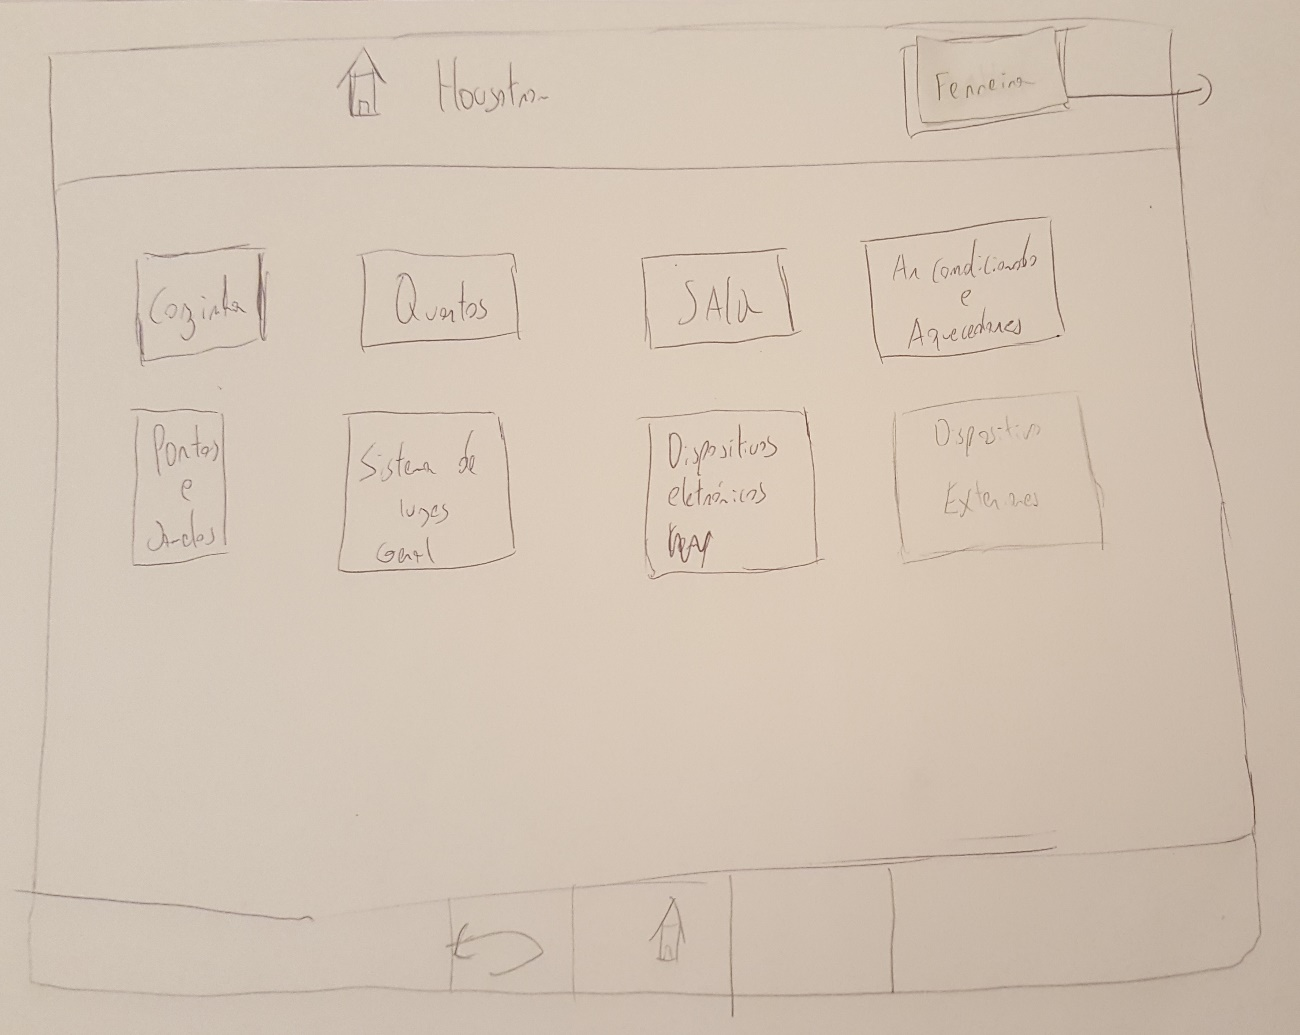 Ferreira
Cozinha
Quartos
SALA
Ar Condicionado
e
Aquecedores
Portas
e
Janelas
Sistema de
luzes
Geral
Dispositivos
eletrónicos
Dispositivos
Exteriores